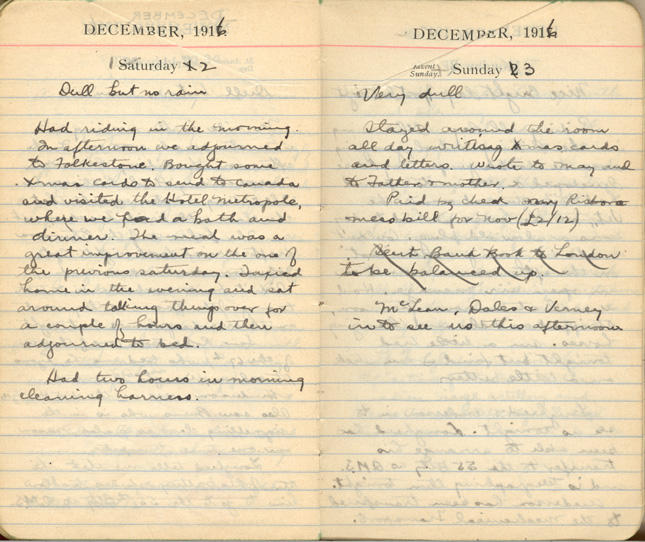 DECEMBER, 1916
Saturday 2
Dull but no rain
Had riding in the morning.
In afternoon we adjourned
to Folkestone. Bought some
Xmas cards to send to Canada
and visited the Hotel Metropole,
where we had a bath and
dinner. The meal was a
great improvement on the one of
the previous Saturday. Taxied
home in the evening and sat
around talking things over for
a couple of hours and then
adjourned to bed.
Had two hours in morning
cleaning harness.
DECEMBER, 1916
Advent Sunday Sunday 3
Very dull
Stayed around the room
all day writing Xmas cards
and letters. Wrote to May and
to Father & mother.
Paid by check my
mess bill for Nov (£2/12)
Sent Bank Book to London
to be balanced up.
McLean, Dales & Verney
in to see us this afternoon